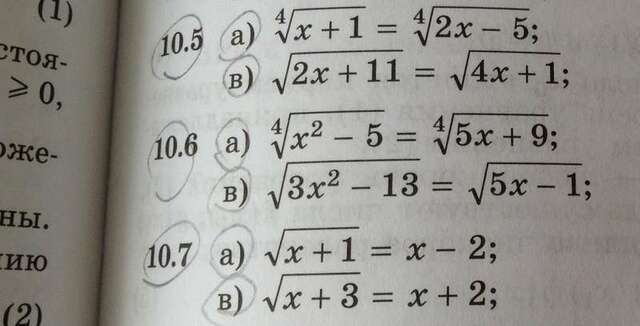 (1)
стоя-
⩾ 0,
оже-
ны.
нию
(2)
10.5 а) ∜(x + 1) = ∜(2x − 5);
в) √(2x + 11) = √(4x + 1);
10.6 а) ∜(x² − 5) = ∜(5x + 9);
в) √(3x² − 13) = √(5x − 1);
10.7 а) √(x + 1) = x − 2;
в) √(x + 3) = x + 2;